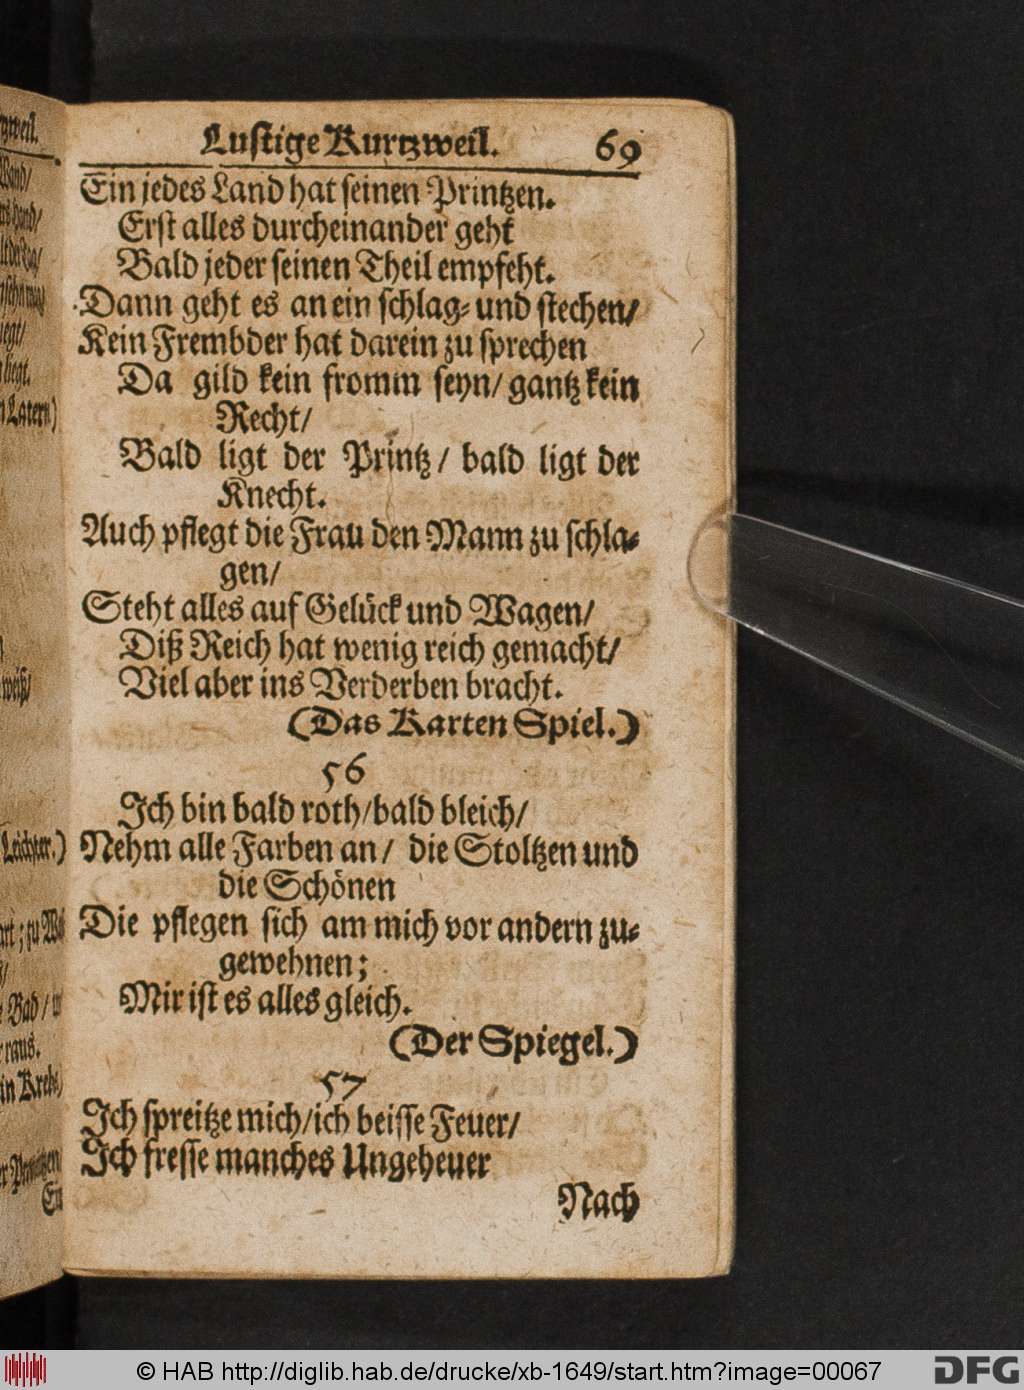 Lustige Kurtzweil. 69
Ein jedes Land hat seinen Printzen.
Erst alles durcheinander geht
Bald jeder seinen Theil empfeht.
Dann geht es an ein schlag- und stechen/
Kein Frembder hat darein zu sprechen
Da gild kein fromm seyn/ gantz kein
Recht/
Bald ligt der Printz/ bald ligt der
Knecht.
Auch pflegt die Frau den Mann zu schla-
gen/
Steht alles auf Gelück und Wagen/
Diß Reich hat wenig reich gemacht/
Viel aber ins Verderben bracht.
(Das Karten Spiel.)
56
Ich bin bald roth/ bald bleich/
Nehm alle Farben an/ die Stoltzen und
die Schönen
Die pflegen sich am mich vor andern zu-
gewehnen;
Mir ist es alles gleich.
(Der Spiegel.)
57
Ich spreitze mich/ ich beisse Feuer/
Ich fresse manches Ungeheuer
Nach
© HAB http://diglib.hab.de/drucke/xb-1649/start.htm?image=00067
DFG